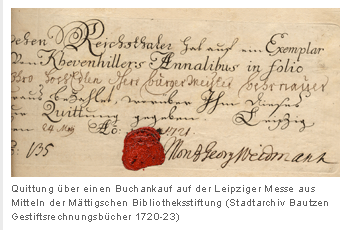 dehen Reichsthaler hat auf ein Exemplar
von Khevenhillers Annalibus in folio
Herr Bürgermeister
bezahlet, worüber Ihm dieses
Quittung gegeben Leipzig
24 May Ao: 1721.
No: 135
Moritz Georg Weidmann
Quittung über einen Buchankauf auf der Leipziger Messe aus
Mitteln der Mättigschen Bibliotheksstiftung (Stadtarchiv Bautzen
Gestiftsrechnungsbücher 1720-23)